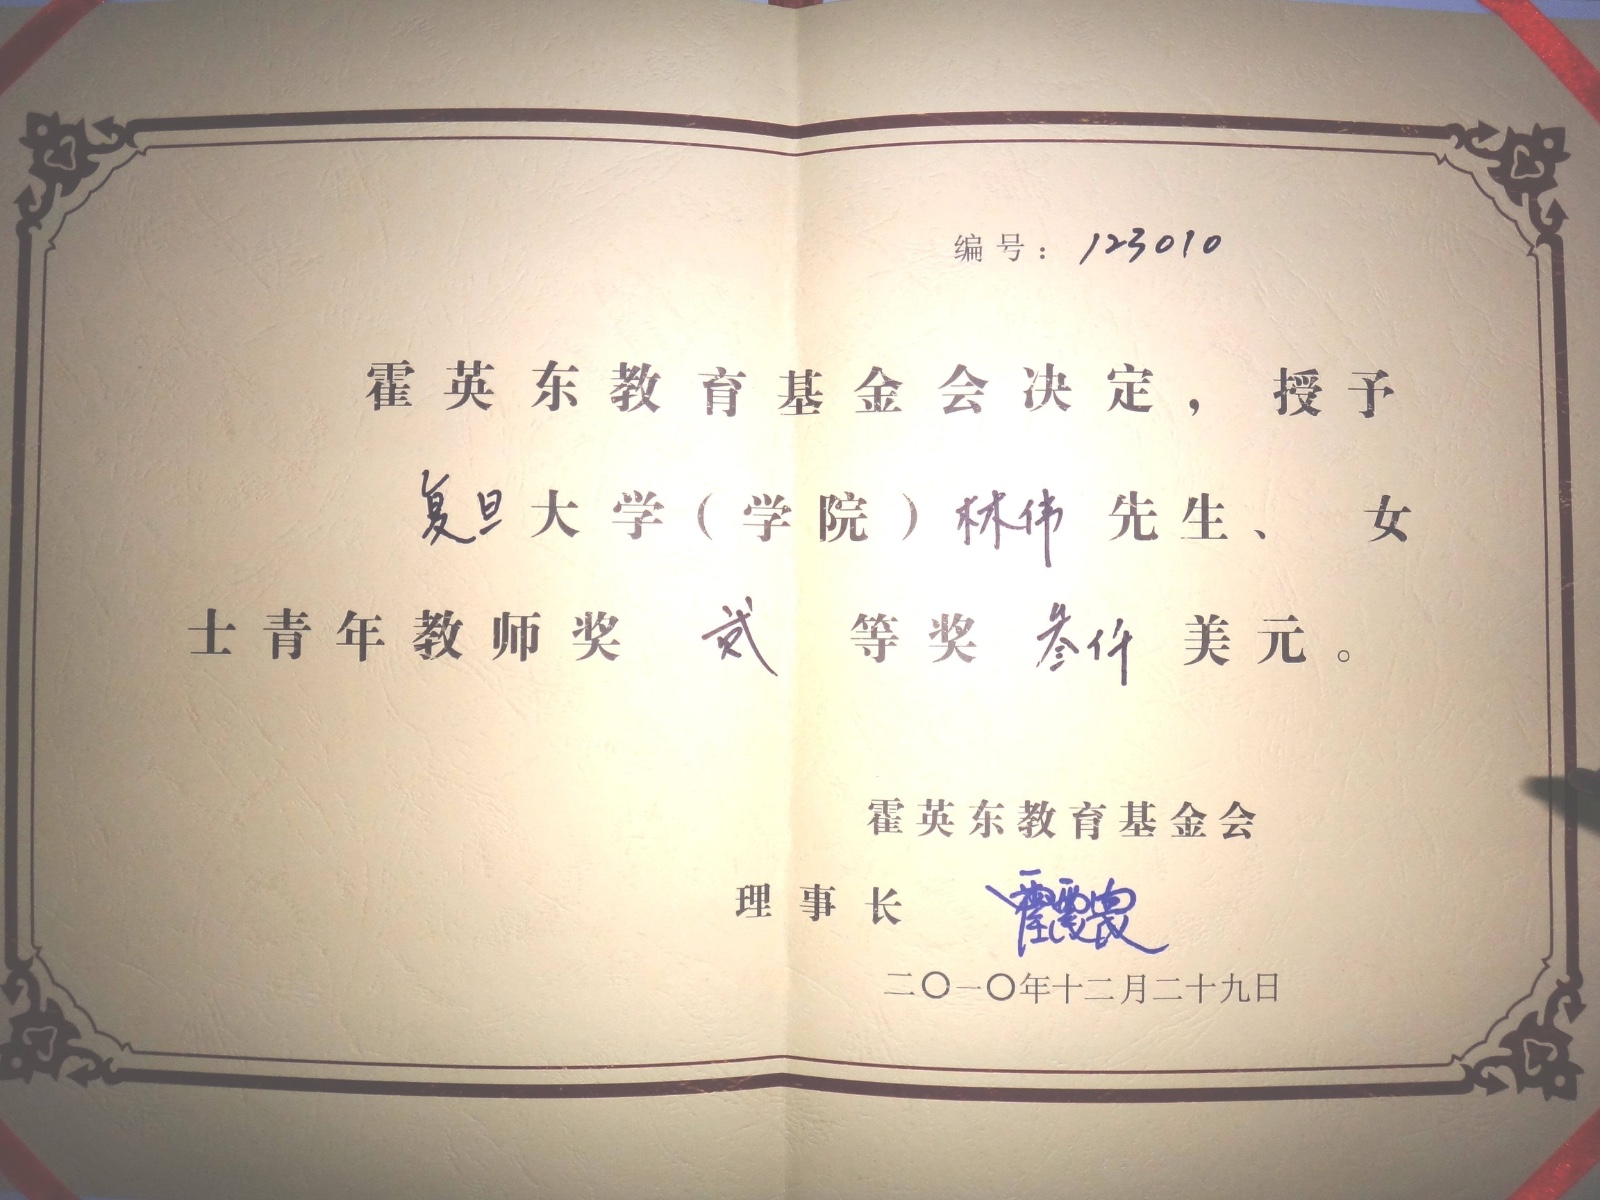 编号：123010
霍英东教育基金会决定，授予
复旦大学（学院）林伟先生、 女
士青年教师奖 贰 等奖 叁仟 美元。
霍英东教育基金会
理事长 霍震寰
二〇一〇年十二月二十九日